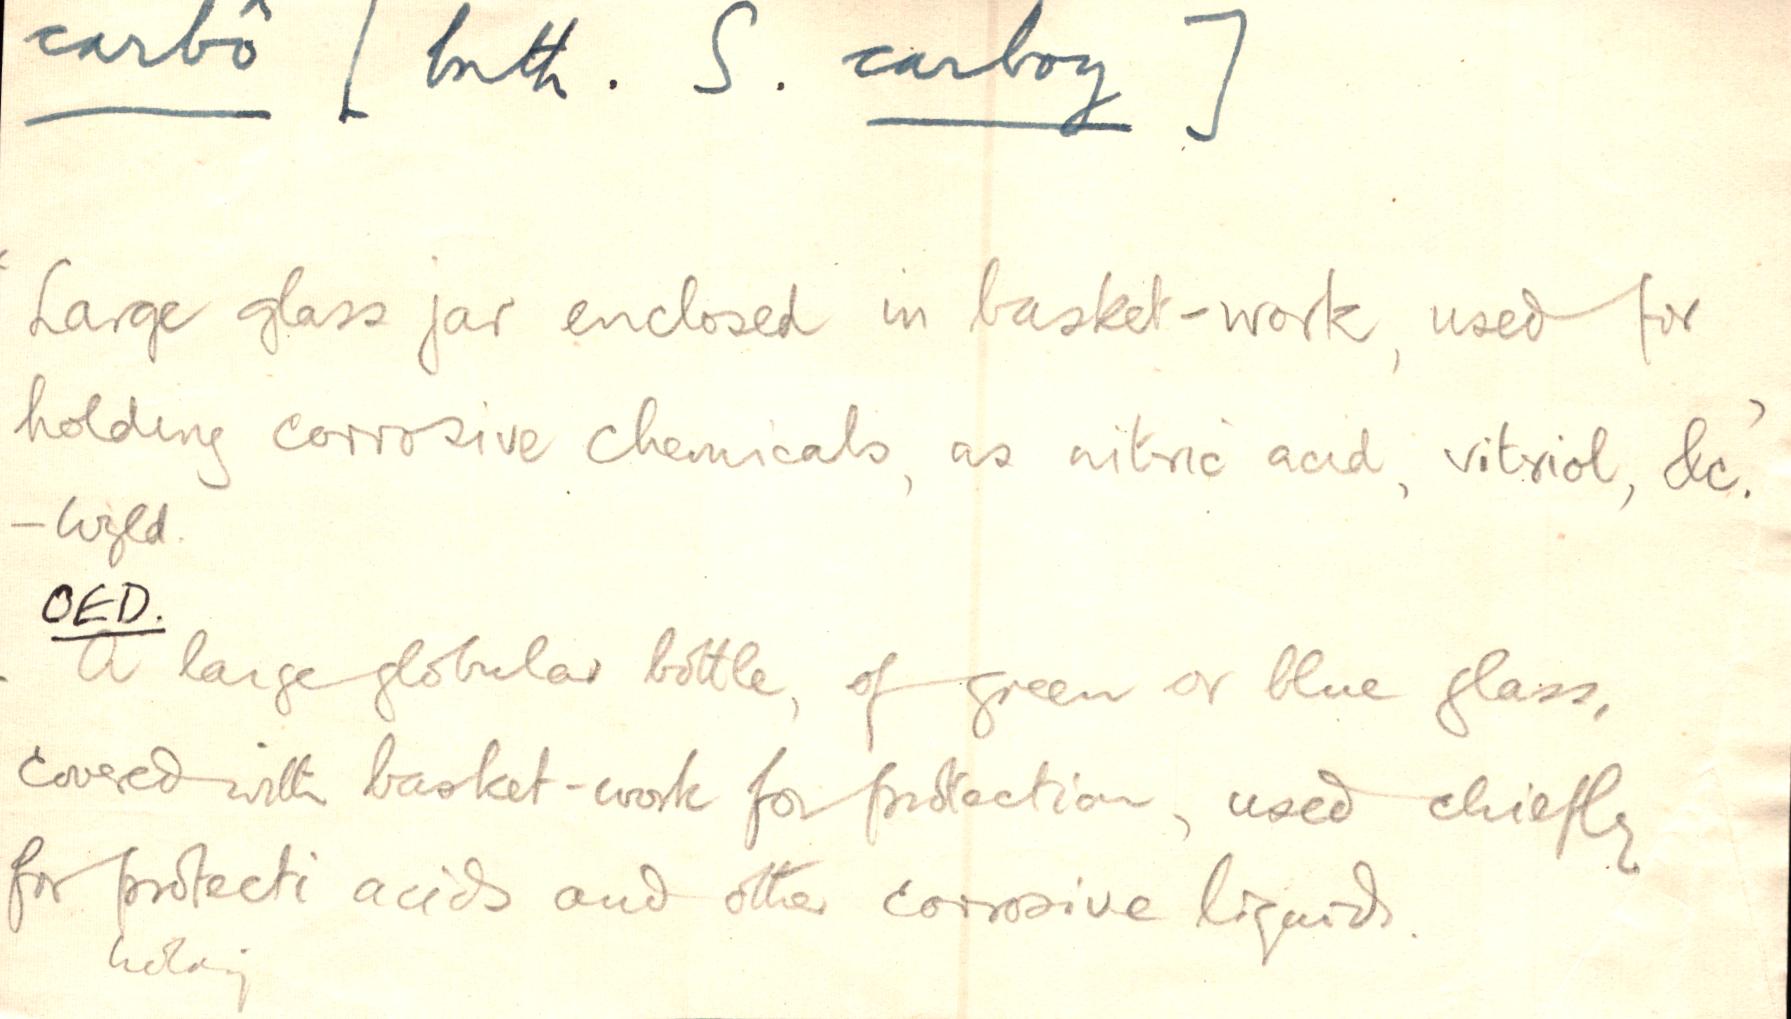 carbô [ bnth. S. carboy ]
'Large glass jar enclosed in basket-work, used for
holding corrosive chemicals, as nitric acid, vitriol, &c.'
– Wyld.
OED.
A large globular bottle, of green or blue glass,
covered with basket-work for protection, used chiefly
for protecti acids and other corrosive liquids.
holding